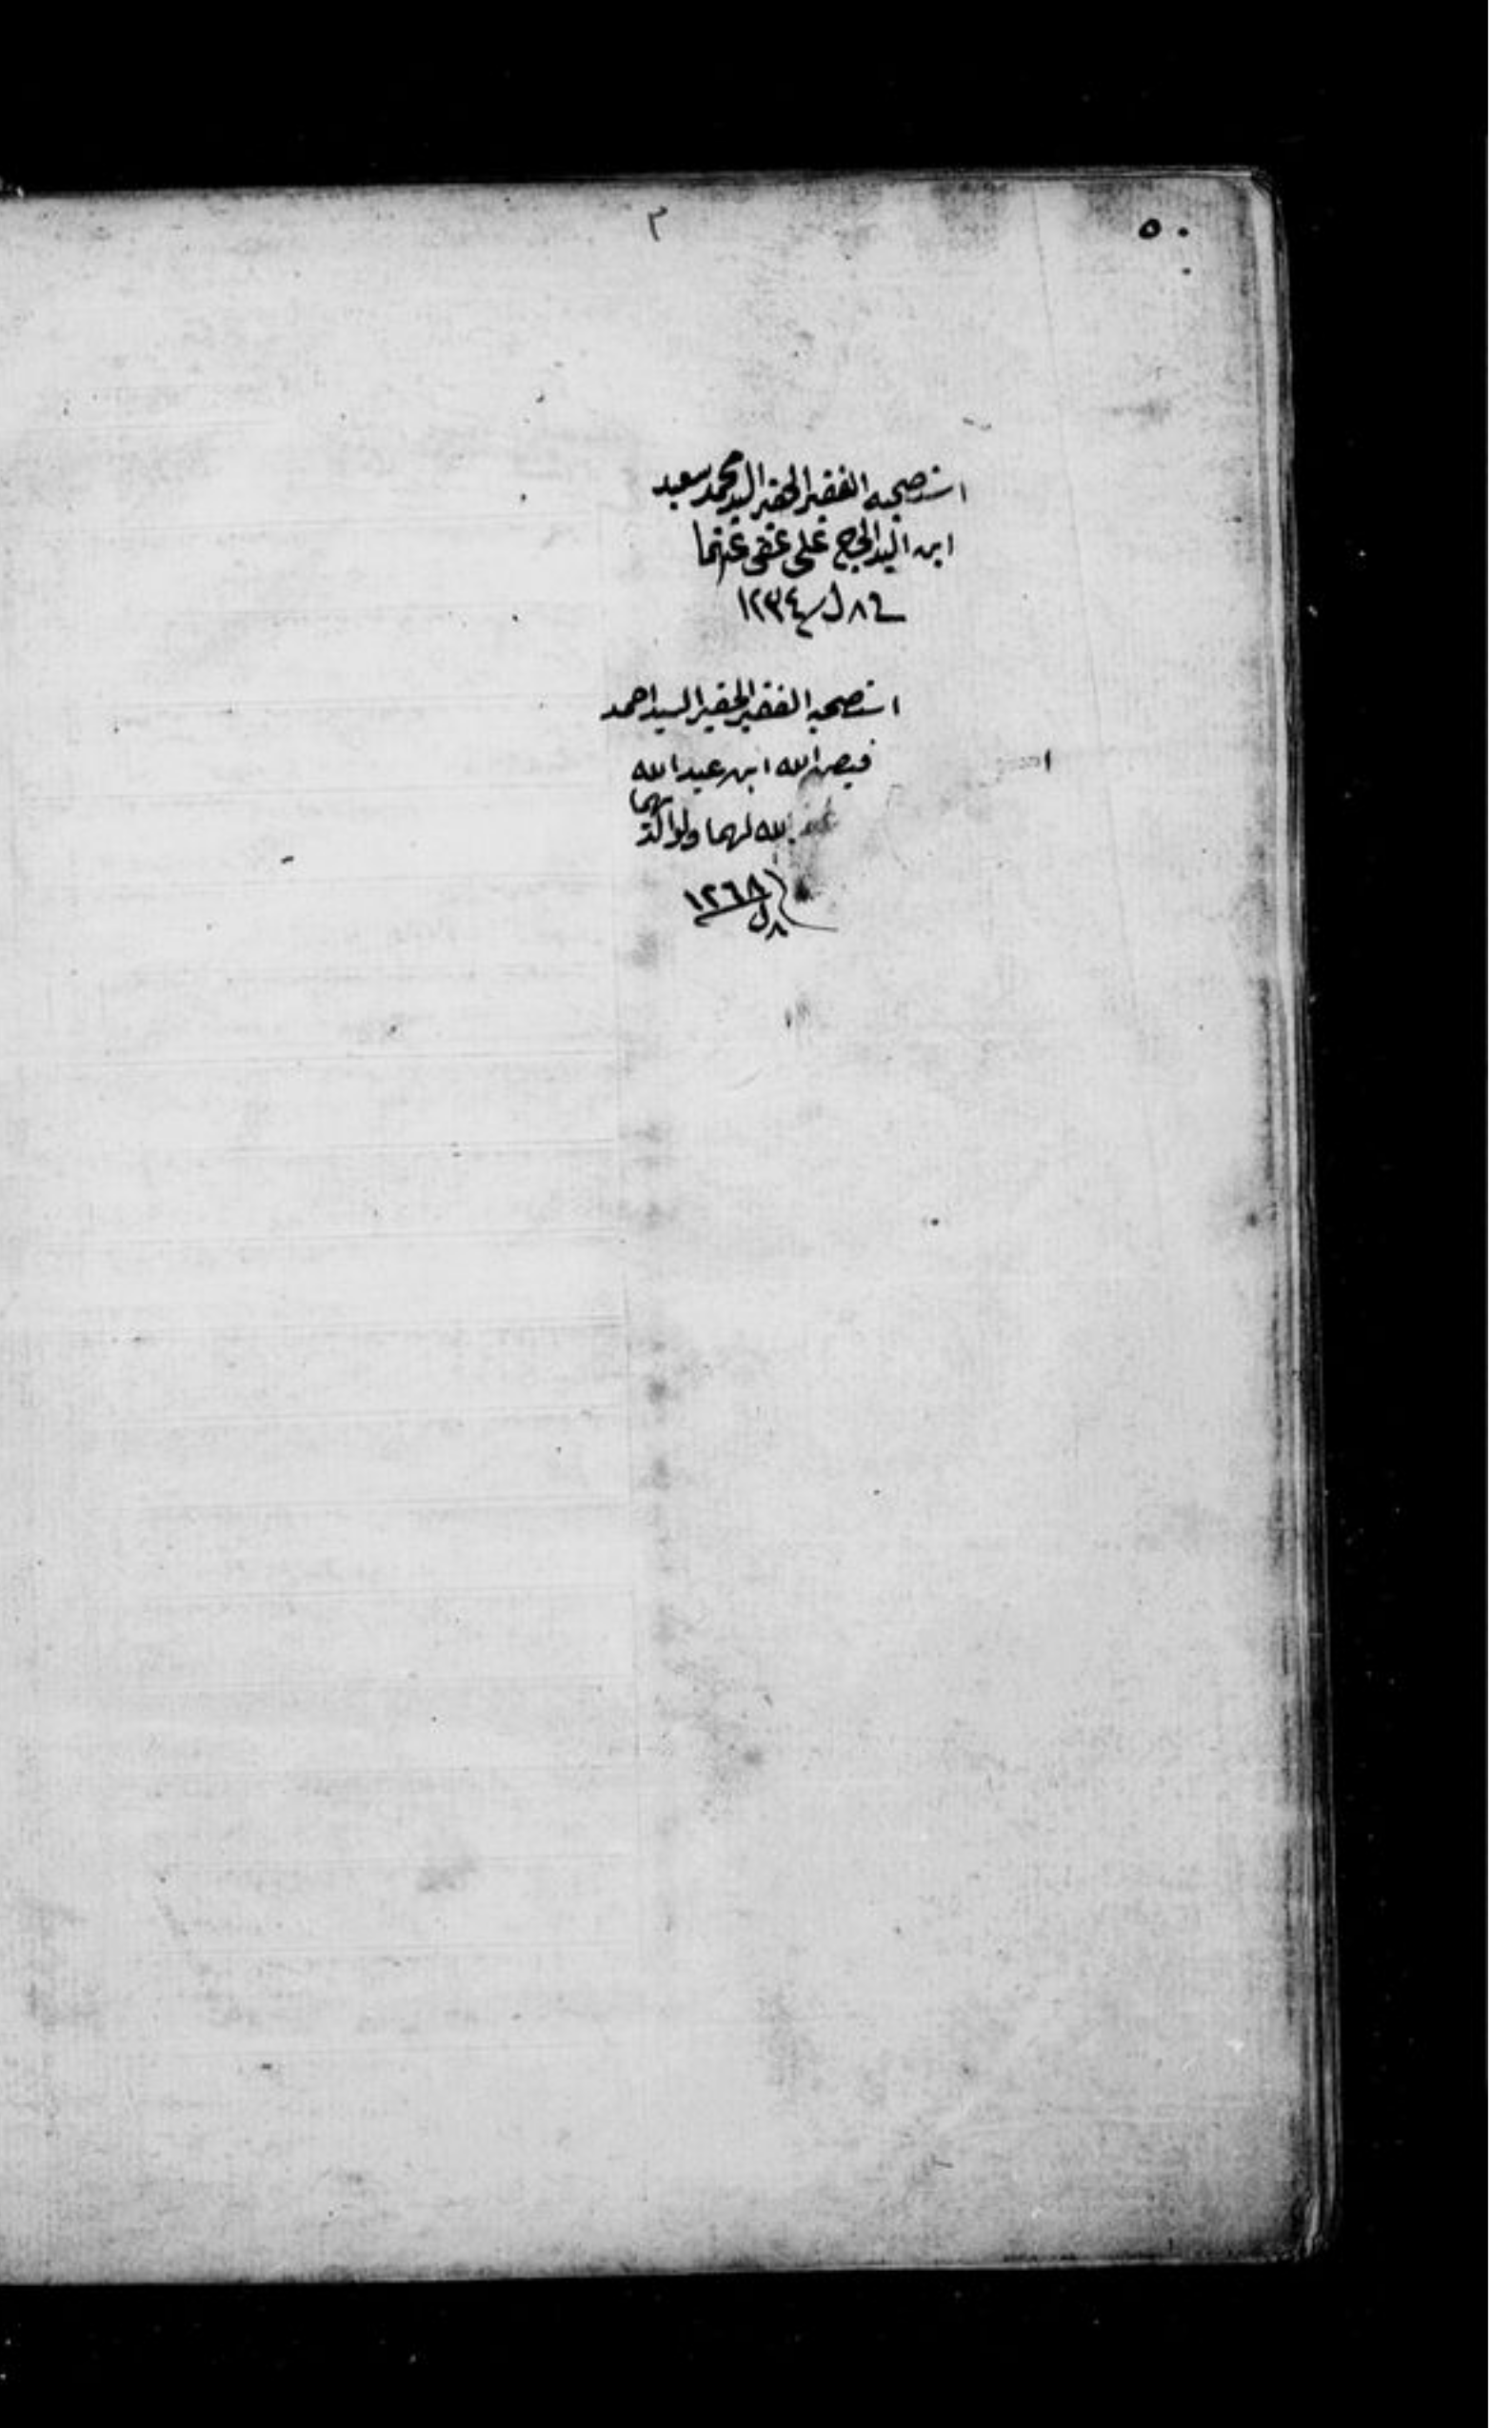 ٥٠
٣
استصحبه الفقير الحقير السيد محمد سعيد
ابن السيد الحاج علي عفى عنهما
في ٨ ل سنة ١٢٣٤
استصحبه الفقير الحقير السيد احمد
فيض الله ابن عبد الله
غفر الله لهما ولوالديهما
٨ ل ١٢٦٨